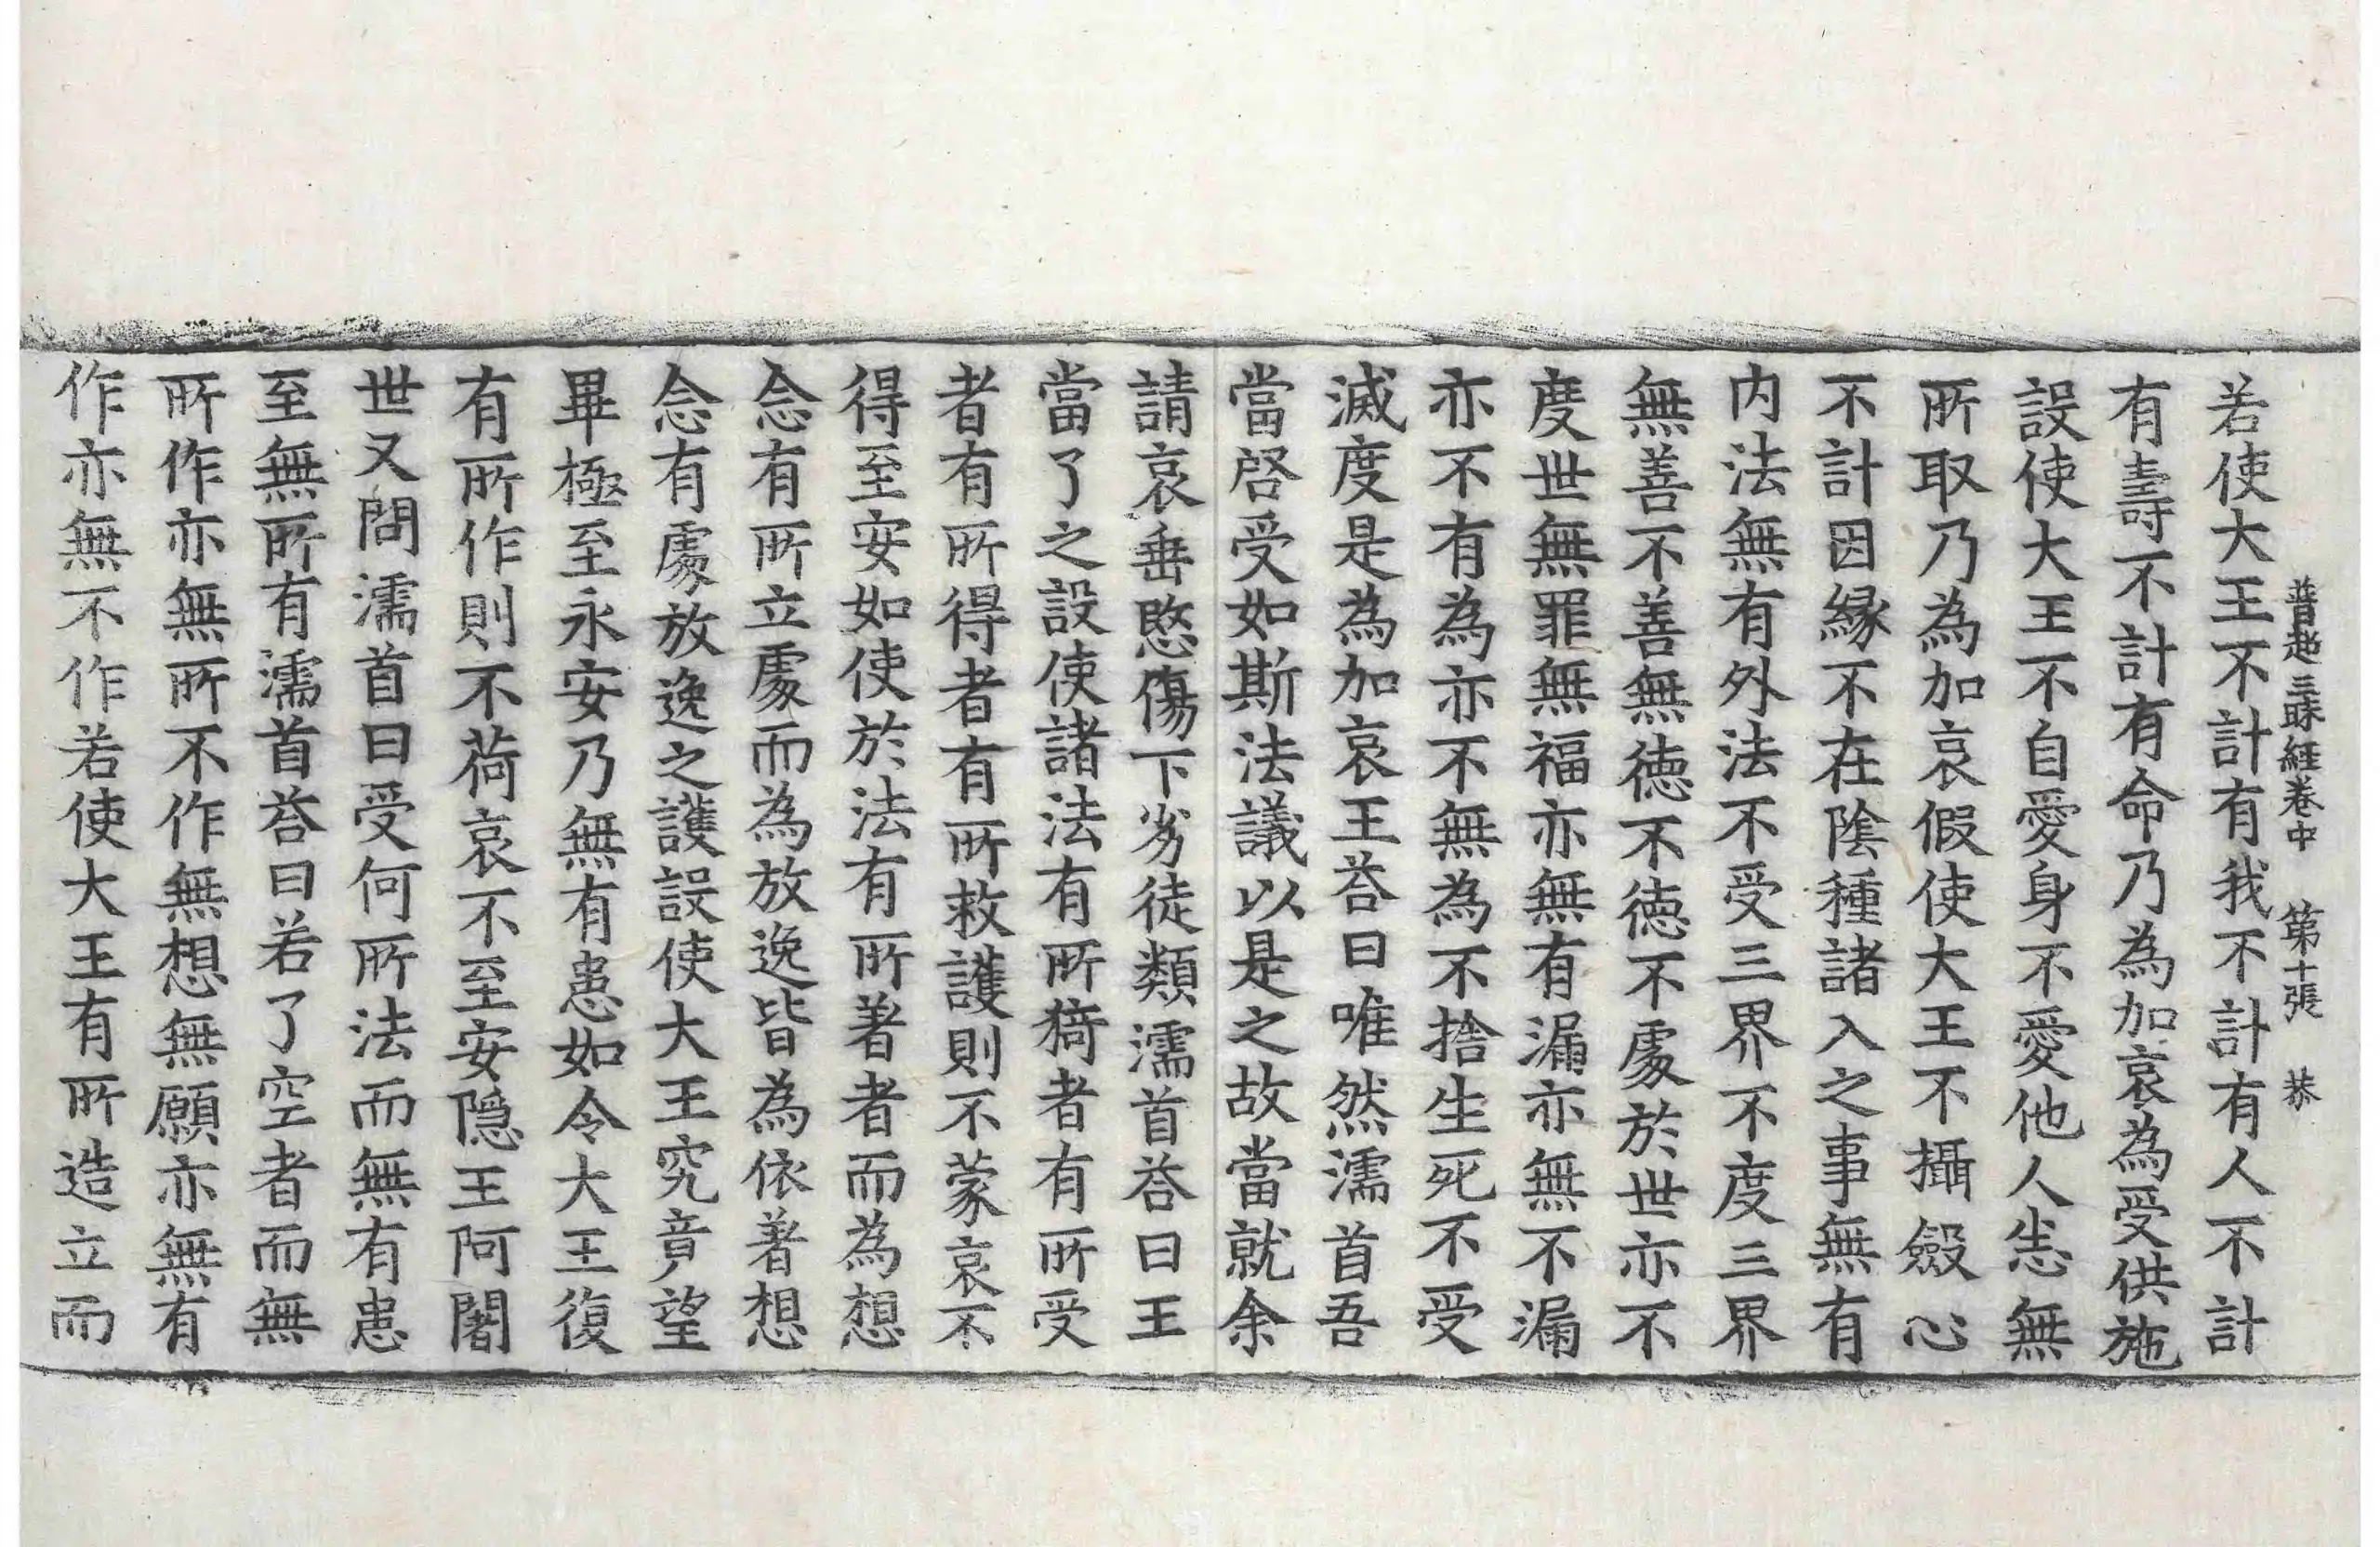 普超三昧經卷中　第十張　恭
若使大王不計有我不計有人不計
有壽不計有命乃為加哀為受供施
設使大王不自愛身不愛他人恙無
所取乃為加哀假使大王不攝斂心
不計因緣不在陰種諸入之事無有
内法無有外法不受三界不度三界
無善不善無德不德不處於世亦不
度世無罪無福亦無有漏亦無不漏
亦不有為亦不無為不捨生死不受
滅度是為加哀王荅曰唯然濡首吾
當啓受如斯法議以是之故當就余
請哀垂愍傷下劣徒類濡首荅曰王
當了之設使諸法有所猗者有所受
者有所得者有所救護則不蒙哀不
得至安如使於法有所著者而為想
念有所立處而為放逸皆為依著想
念有處放逸之護設使大王究竟望
畢極至永安乃無有恚如令大王復
有所作則不荷哀不至安隱王阿闍
世又問濡首曰受何所法而無有恚
至無所有濡首荅曰若了空者而無
所作亦無所不作無想無願亦無有
作亦無不作若使大王有所造立而